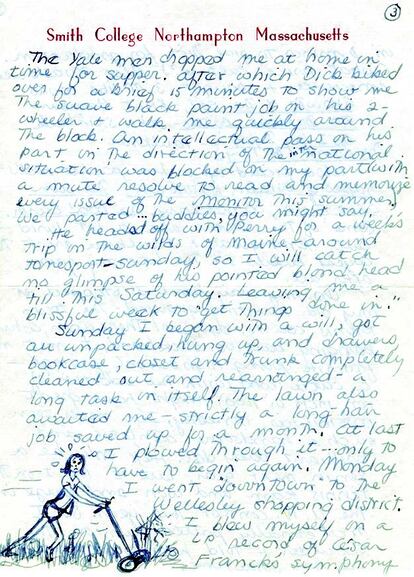 3
Smith College Northampton Massachusetts
The Yale men dropped me at home in
time for supper. after which Dick biked
over for a brief 15 minutes to show me
The suave black paint job on his 2-
wheeler & walk me quickly around
The block. An intellectual pass on his
part in the direction of the national
situation was blocked on my part with
a mute resolve to read and memorize
every issue of the Monitor This summer,
We parted... buddies, you might say.
He heads off with Perry for a week's
trip in the wilds of Maine - around
Jonesport - Sunday, so I will catch
no glimpse of his pointed blond head
till This Saturday. Leaving me a
blissful week to "get Things done in."
Sunday I began with a will, got
all unpacked, hung up, and drawers,
bookcase, closet and trunk completely
cleaned out and rearranged - a
long task in itself. The lawn also
awaited me - strictly a long-hair
job saved up for a month. At last
I plowed Through it - only to
have to begin again. Monday
I went "downtown" to the
Wellesley shopping district.
I blew myself on a
LP record of César
Franck's symphony